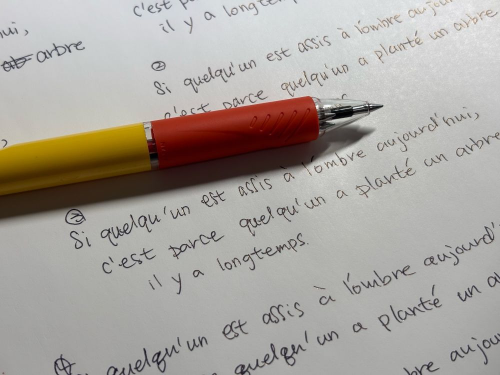 c'est pa
il y a longtemp
hui,
arbre
②
Si quelqu'un est assis à l'ombre aujour
c'est parce quelqu'un a planté un arbre
②
Si quelqu'un est assis à l'ombre aujourd'hui,
c'est parce quelqu'un a planté un arbre
il y a longtemps.
Si quelqu'un est assis à l'ombre aujourd'
quelqu'un a planté un a
bre aujou